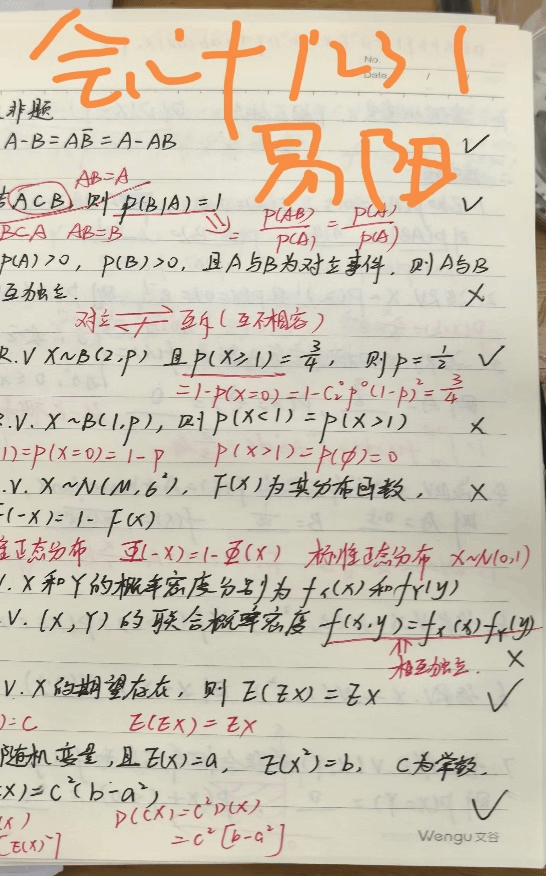 会计1231
易阳
No.
Date
非题
A-B=AB̄=A-AB ✓
AB=A
A⊂B, 则 P(B|A)=1 ✓
B⊂A AB=B = P(AB)/P(A) = P(A)/P(A)
P(A)>0, P(B)>0, 且A与B为对立事件, 则A与B
互独立. ×
对立 ⇄ 互斥(互不相容)
R.V X~B(2,p) 且 P(X≥1)=3/4, 则 p=1/2 ✓
=1-P(X=0)=1-C₂⁰p⁰(1-p)²=3/4
.V. X~B(1,p), 则 P(X<1)=P(X>1) ×
1)=P(X=0)=1-P P(X>1)=P(∅)=0
.V. X~N(M,6²), F(x)为其分布函数, ×
F(-x)=1-F(x)
准正态分布 Φ(-x)=1-Φ(x) 标准正态分布 X~N(0,1)
. X和Y的概率密度分别为 fx(x)和fY(y)
.V. (X,Y)的联合概率密度 f(x,y)=fx(x)fY(y)
相互独立. ×
V. X的期望存在, 则 E(EX)=EX ✓
)=C E(EX)=EX
随机变量, 且E(X)=a, E(X²)=b, C为常数.
CX)=C²(b-a²) ✓
(X) D(CX)=C²D(X)
=C²[b-a²]
Wengu 文谷